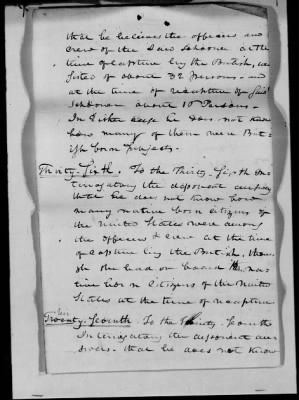 that he believes the officers and
crew of the said Schooner at the
time of capture by the British, con
sisted of about 32 persons - and
at the time of recapture of said
Schooner about 10 Persons.
In Either case he does not know
how many of them were Brit-
ish born subjects.
Thirty-Sixth. To the Thirty-Sixth In
terogatory the deponent answers
that he does not know how
many native born Citizens of
the United States were among
the officers & crew at the time
of capture by the British, thou-
gh she had on board na-
tive born Citizens of the United
States at the time of recapture
Twenty-Seventh. To the Thirty-Seventh
Interogatory the deponent ans
wers. that he does not know